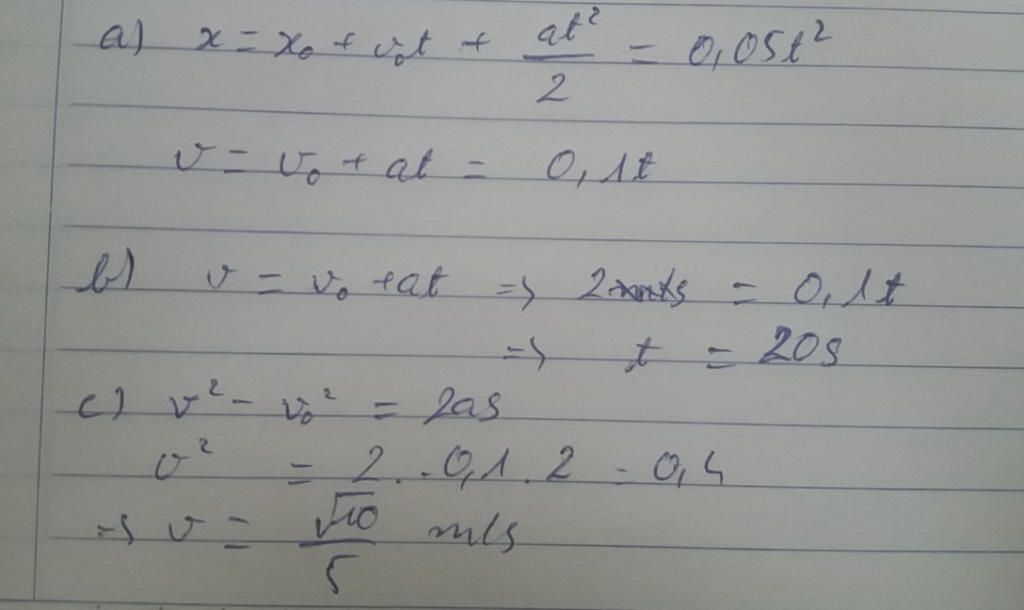 a) x = x₀ + v₀t + at²/2 = 0,05t²
v = v₀ + at = 0,1t
b) v = v₀ + at => 2 = 0,1t
=> t = 20s
c) v² - v₀² = 2as
v² = 2 . 0,1 . 2 = 0,4
=> v = √10/5 m/s